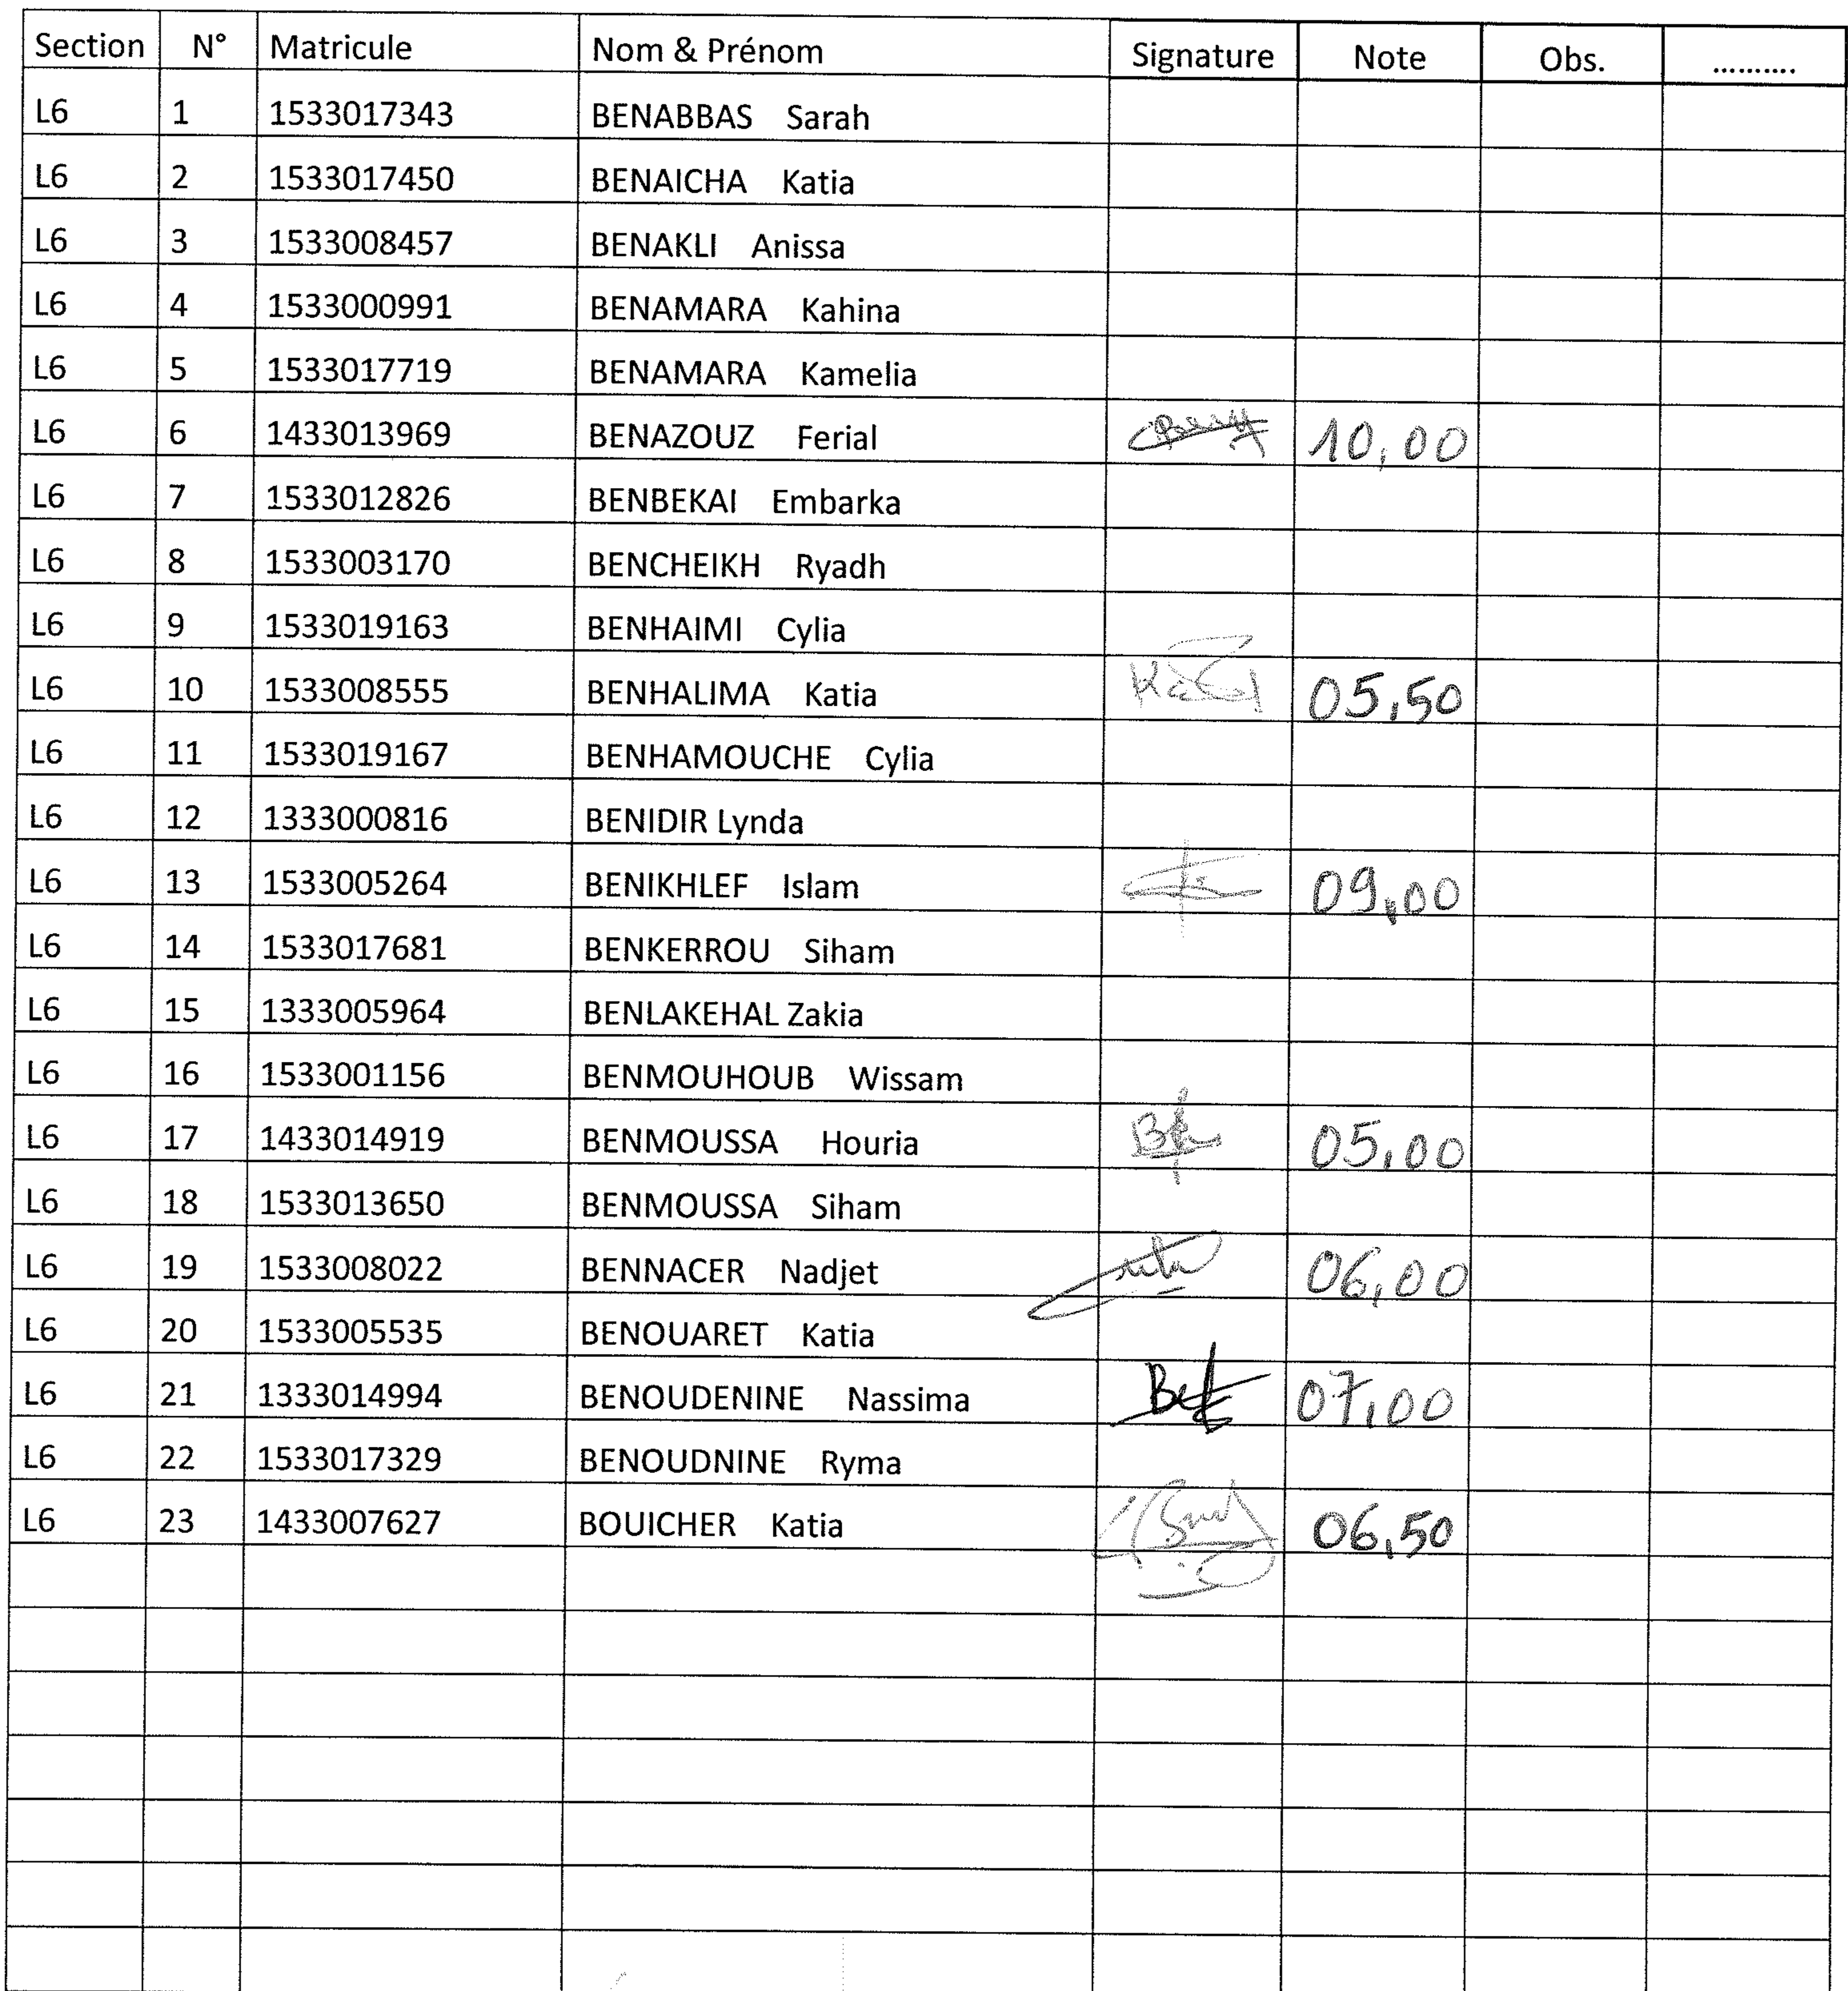 Section N° Matricule Nom & Prénom Signature Note Obs. ..........
L6 1 1533017343 BENABBAS Sarah
L6 2 1533017450 BENAICHA Katia
L6 3 1533008457 BENAKLI Anissa
L6 4 1533000991 BENAMARA Kahina
L6 5 1533017719 BENAMARA Kamelia
L6 6 1433013969 BENAZOUZ Ferial 10,00
L6 7 1533012826 BENBEKAI Embarka
L6 8 1533003170 BENCHEIKH Ryadh
L6 9 1533019163 BENHAIMI Cylia
L6 10 1533008555 BENHALIMA Katia 05,50
L6 11 1533019167 BENHAMOUCHE Cylia
L6 12 1333000816 BENIDIR Lynda
L6 13 1533005264 BENIKHLEF Islam 09,00
L6 14 1533017681 BENKERROU Siham
L6 15 1333005964 BENLAKEHAL Zakia
L6 16 1533001156 BENMOUHOUB Wissam
L6 17 1433014919 BENMOUSSA Houria 05,00
L6 18 1533013650 BENMOUSSA Siham
L6 19 1533008022 BENNACER Nadjet 06,00
L6 20 1533005535 BENOUARET Katia
L6 21 1333014994 BENOUDENINE Nassima 07,00
L6 22 1533017329 BENOUDNINE Ryma
L6 23 1433007627 BOUICHER Katia 06,50